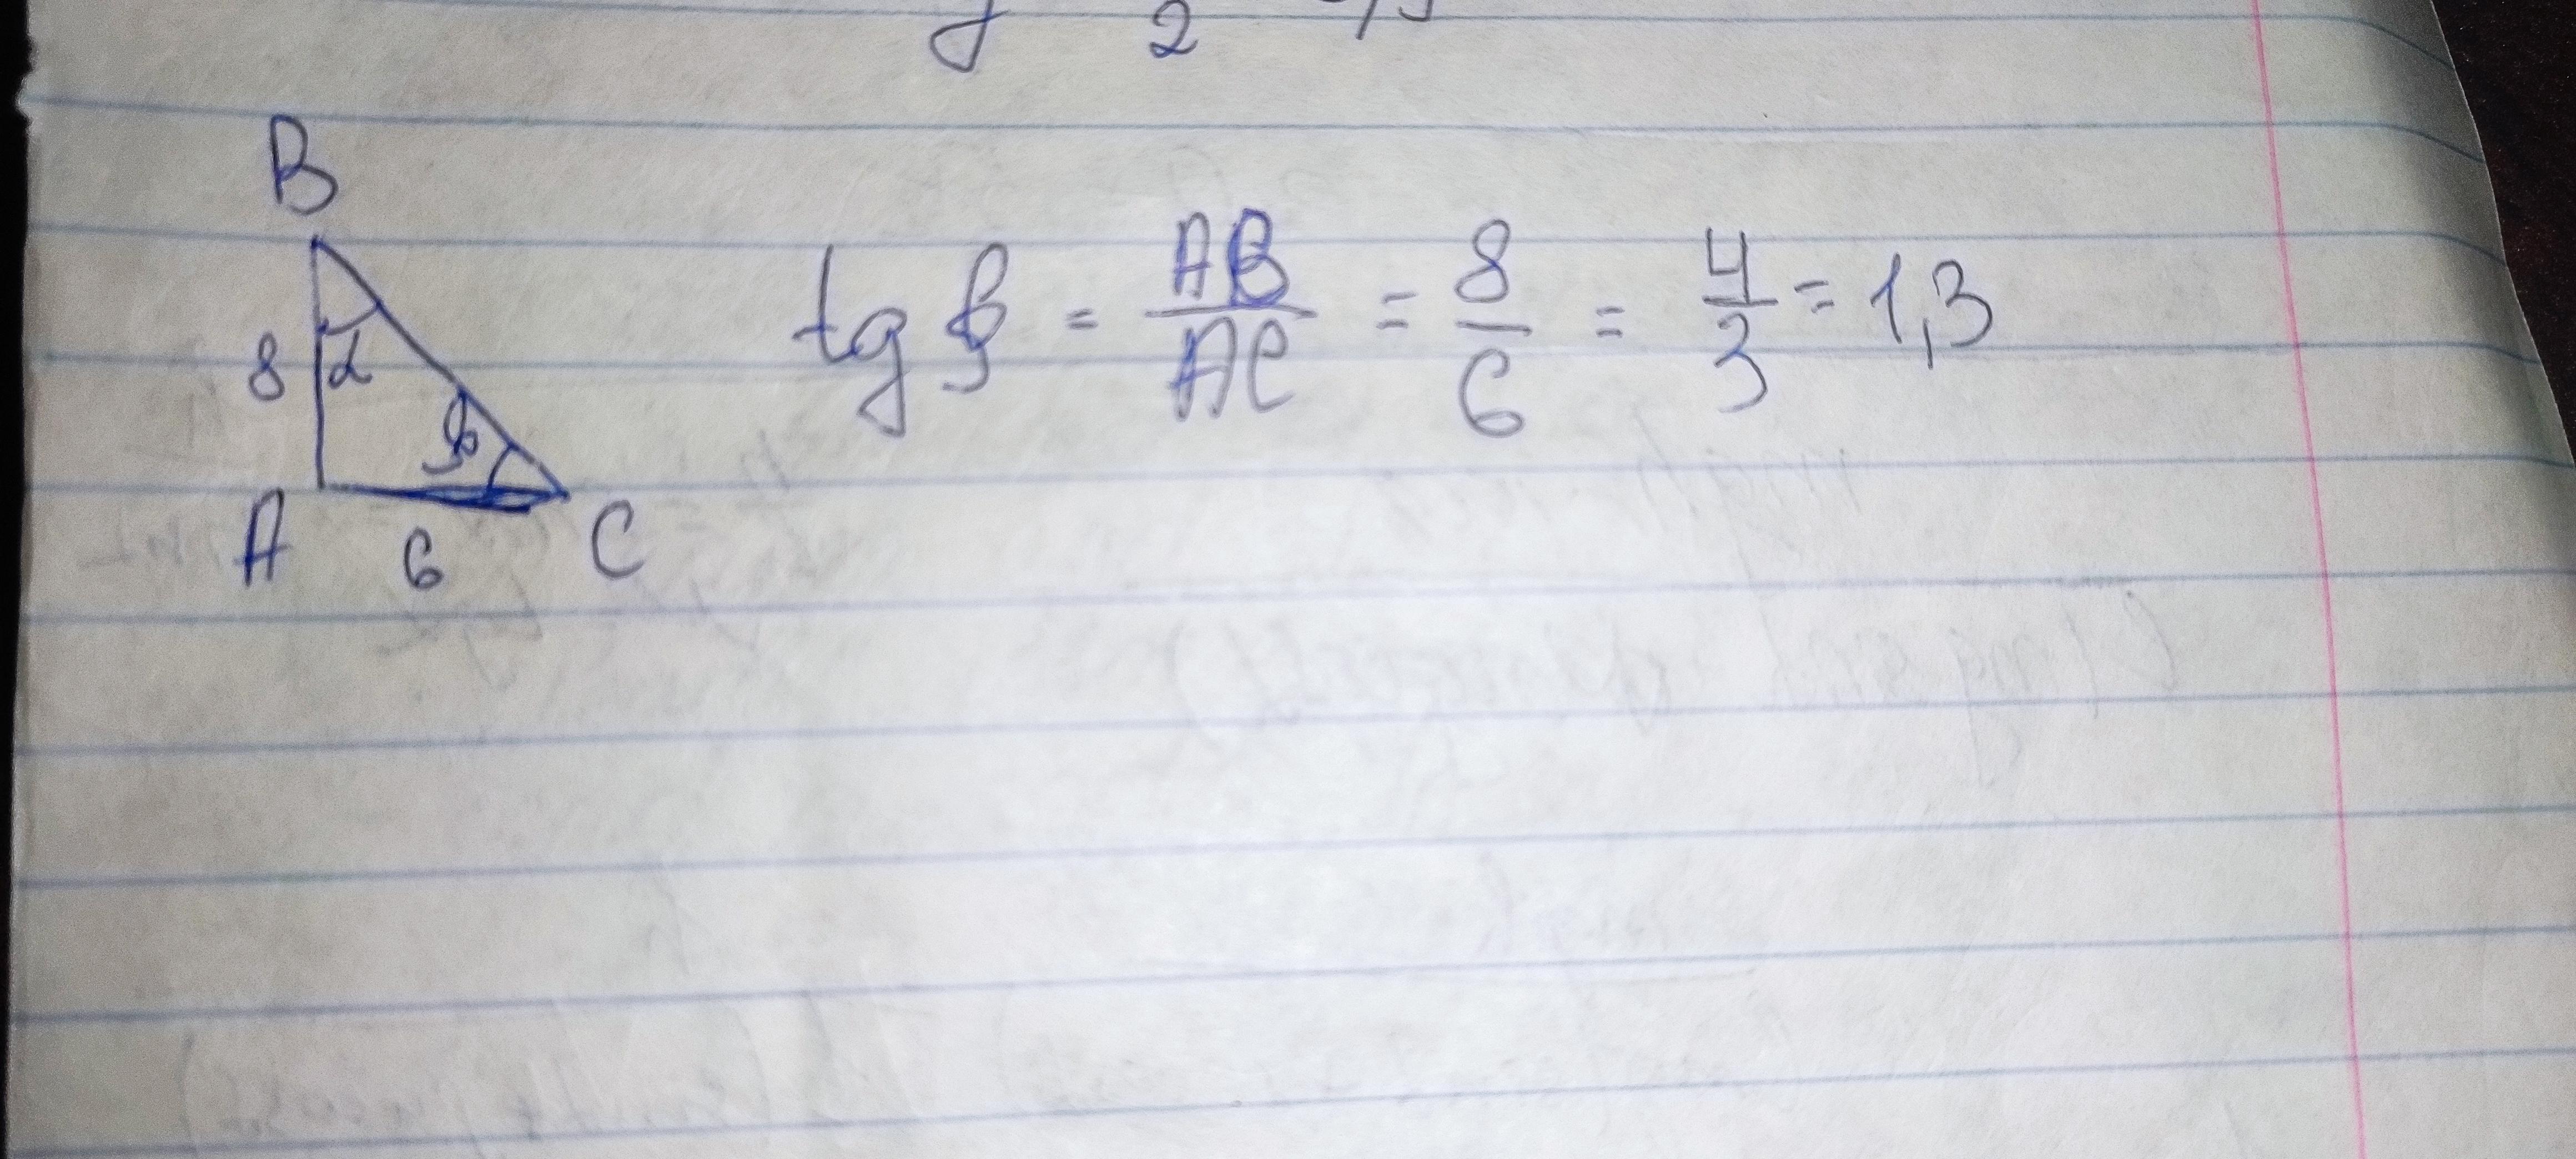 2
B
8 α β
A 6 C
tg β = AB/AC = 8/6 = 4/3 = 1,3